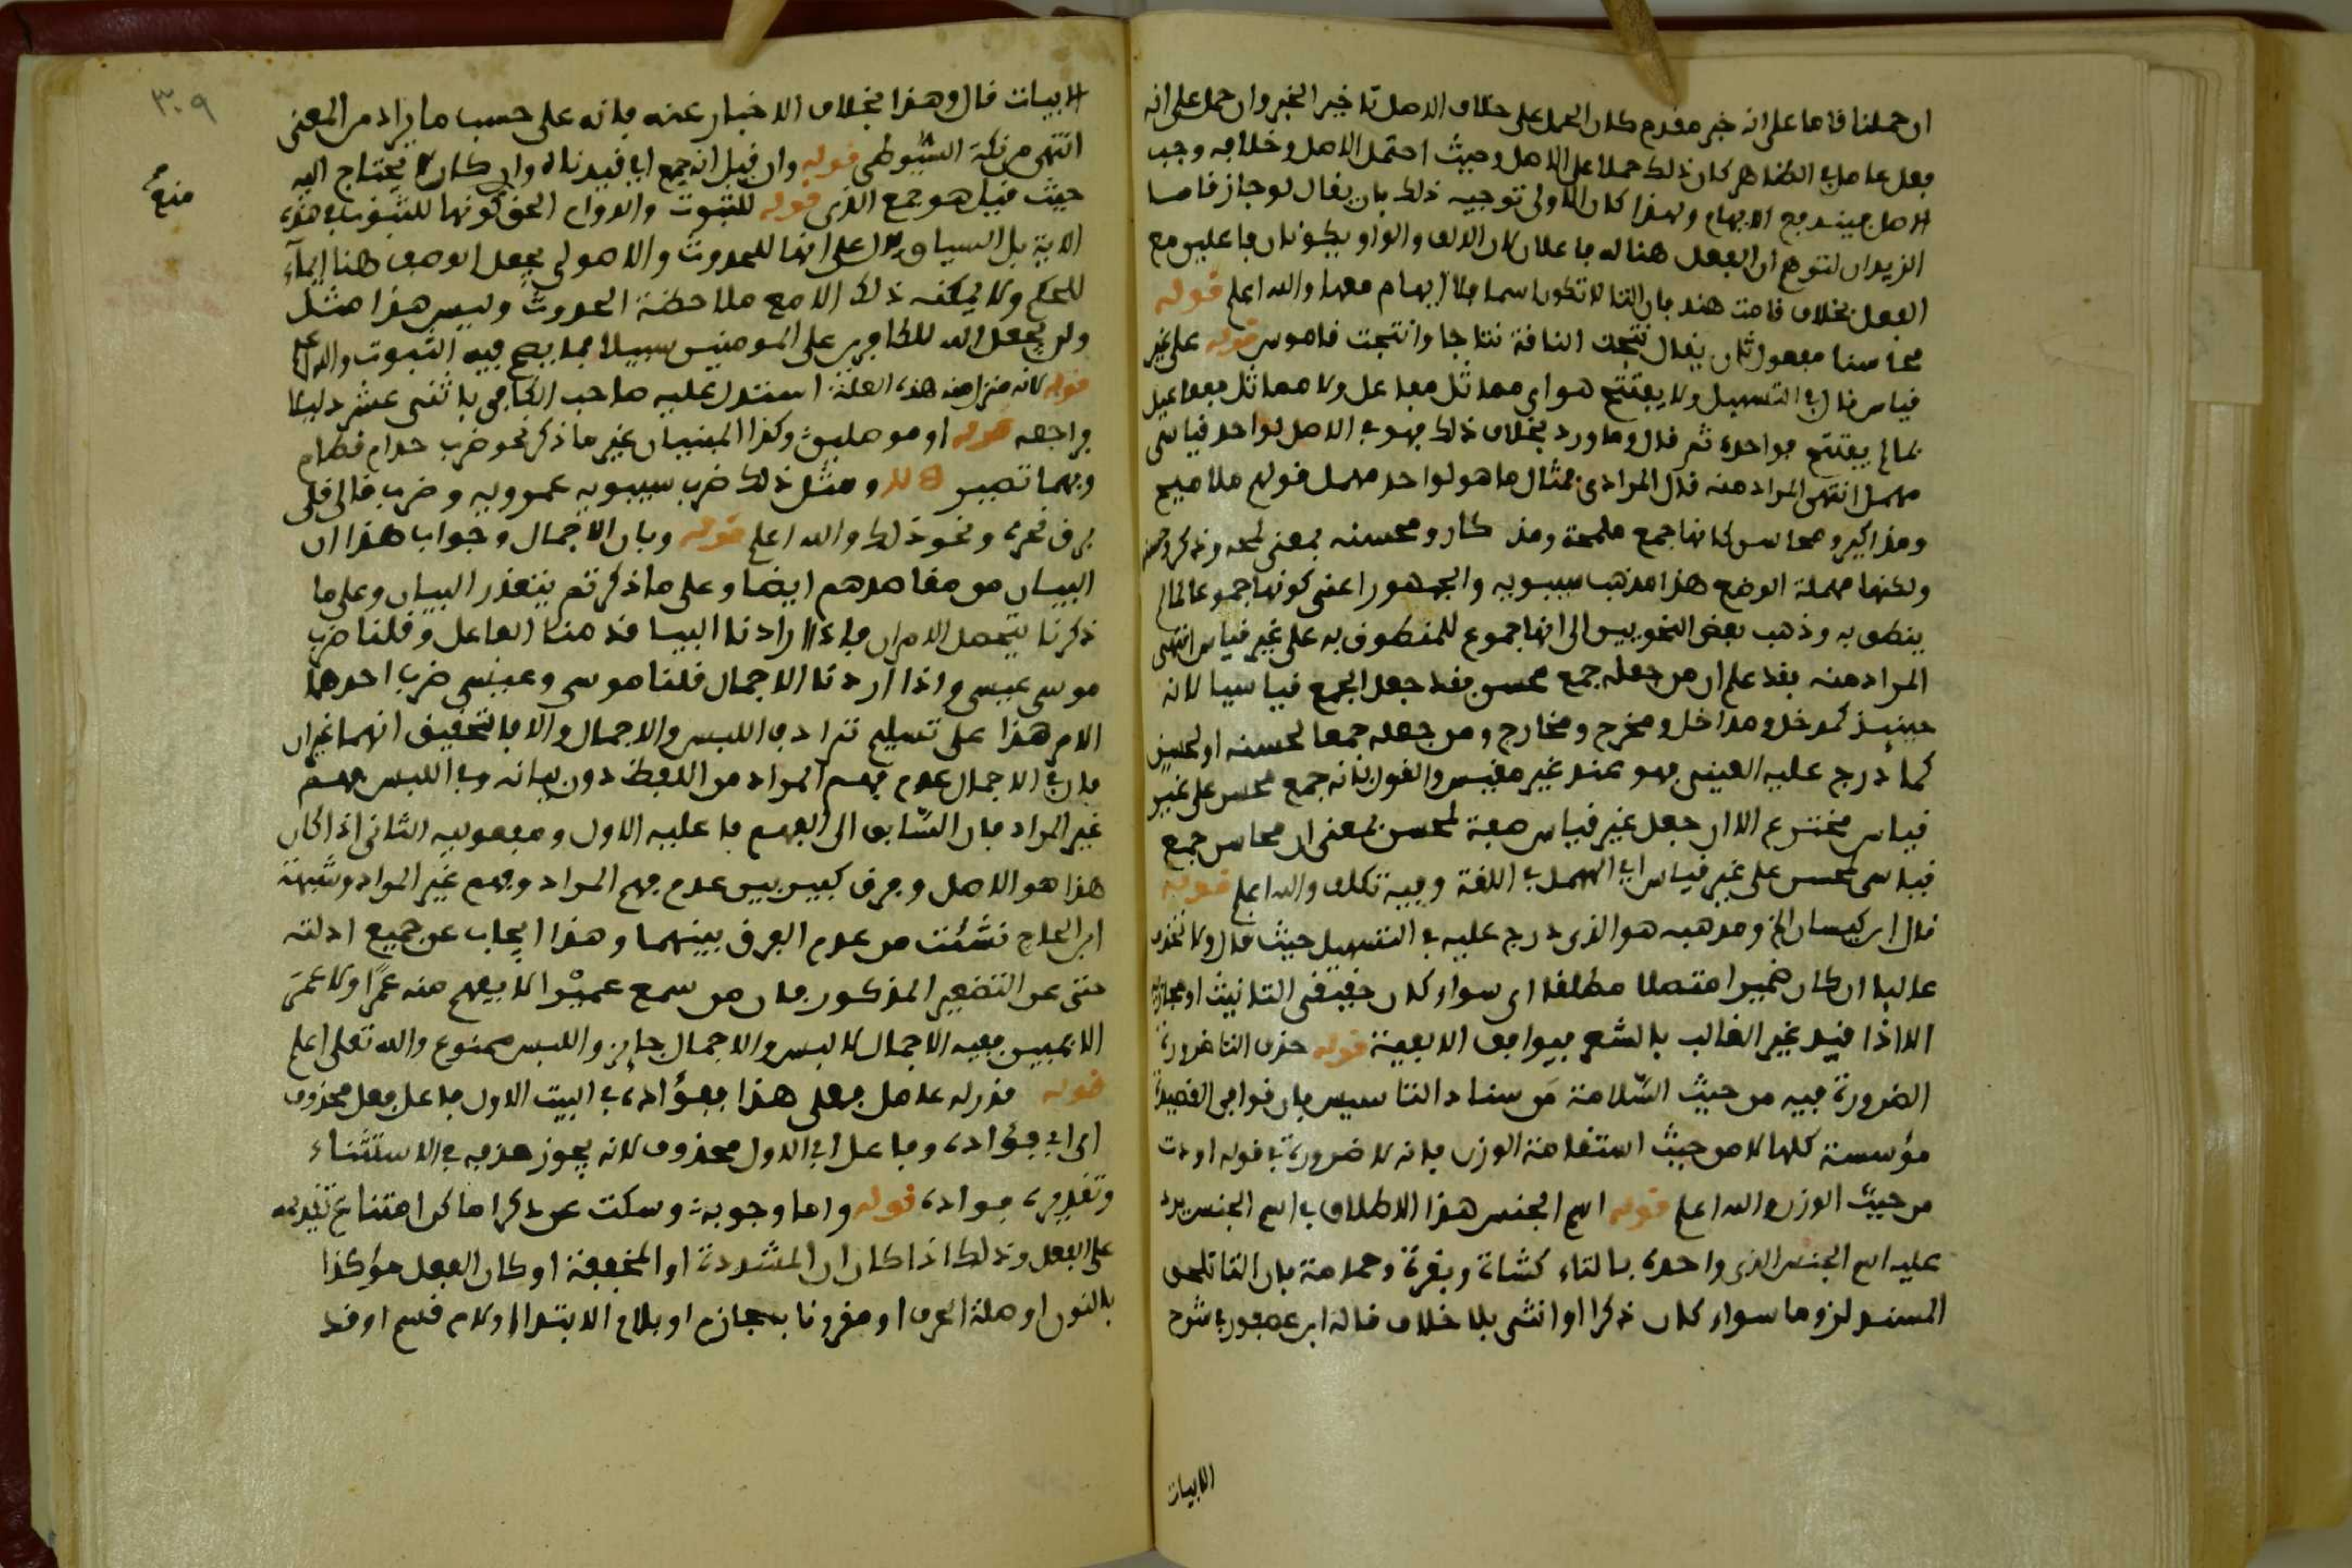 ان حملنا قاما على انه خبر مقدم كان الحمل على خلاف الاصل تاخير الخبر وان حمل على انه
فعل عامل في الظاهر كان ذلك حملا على الاصل وحيث احتمل الاصل وخلافه وجب
الاصل حينئذ مع الابهام ولهذا كان الاولى توجيه ذلك بان يقال لو جاز قاما
الزيدان لتوهم ان الفعل هنا له فاعلان لان الالف والواو يكونان فاعلين مع
الفعل بخلاف قامت هند فان التا لا تكون اسما فلا ابهام معها والله اعلم قوله
محاسنا مفعول ثان يقال نتجت الناقة نتاجا وانتجت قاموس قوله على غير
قياس قال في التسهيل ولا يفتتح هو اي مماثل مفاعل ولا مماثل مفاعيل
بما لم يفتتح به واحده ثم قال وما ورد بخلاف ذلك فهو في الاصل لواحد قياسى
مهمل انتهى المراد منه قال المرادى مثال ما هو لواحد مهمل قولهم ملاميح
ومذاكير ومحاسن لانها جمع ملمحة ومذكار ومحسنه بمعنى لمحه وذكر وحسن
ولكنها مهملة الوضع هذا مذهب سيبويه والجمهور اعنى كونها جموعا لما لم
ينطق به وذهب بعض النحويين الى انها جموع للمنطوق به على غير قياس انتهى
المراد منه فقد علم ان من جعله جمع محسن فقد جعل الجمع قياسيا لانه
حينئذ كمدخل ومداخل ومخرج ومخارج ومن جعله جمعا لحسنه او لحسن
كما درج عليه العينى فهو عنده غير مقيس والقول بانه جمع محسن على غير
قياس مخترع الا ان جعل غير قياس صفة لمحسن بمعنى ان محاسن جمع
قياسى لمحسن على غير قياس اي المهمل في اللغة وفيه تكلف والله اعلم قوله
قال ابن كيسان الخ ومذهبه هو الذى درج عليه في التسهيل حيث قال ولا تحذف
غالبا ان كان ضميرا متصلا مطلقا اى سواء كان حقيقى التانيث او مجازيه
الا اذا قيد غير الغالب بالشعر فيوافق الالفية قوله حذف التا ضرورة
الضرورة فيه من حيث السلامة من سناد التاسيس فان قوافى القصيدة
مؤسسة كلها لا من حيث استقامة الوزن فانه لا ضرورة في قوله اودت
من حيث الوزن والله اعلم قوله اسم الجنس هذا الاطلاق في اسم الجنس يرد
عليه اسم الجنس الذى واحده بالتاء كشاة وبقرة وحمامة فان التا تلحق
المسند لزوما سواء كان ذكرا او انثى بلا خلاف قاله ابن عصفور في شرح
الابيات
٣٠٩
الابيات قال وهذا بخلاف الاخبار عنه فانه على حسب ما يراد من المعنى
انتهى من نكة السيوطى قوله وان قيل انه جمع اي قيدناه وان كان لا يحتاج اليه
حيث قيل هو جمع الذى قوله للثبوت والدوام الحق كونها للثبوت في هذه
الاية بل السياق يدل على انها للحدوث والاصولى يجعل الوصف هنا ايماء
للحكم ولا يمكنه ذلك الا مع ملاحظة الحدوث وليس هذا مثل
ولن يجعل الله للكافرين على المومنين سبيلا مما يصح فيه الثبوت والله اعلم
قوله لانه منزل منه هذه العلة استدل عليه صاحب الكافى باثنى عشر دليلا
فراجعه قوله او موصلين وكذا المبنيان غير ما ذكر نحو ضرب حذام قطام
وبهما تصير ومثل ذلك ضرب سيبويه عمرويه وضرب قالى قلى
برق نحره ونحو ذلك والله اعلم قوله وبان الاجمال وجواب هذا ان
البيان من مقاصدهم ايضا وعلى ما ذكرتم يتعذر البيان وعلى ما
ذكرنا يتحصل الامران فاذا ارادنا البيان قدمنا الفاعل وقلنا ضرب
موسى عيسى واذا اردنا الاجمال قلنا موسى وعيسى ضرب احدهما
الاخر هذا على تسليم ترادف اللبس والاجمال والا فالتحقيق انهما غيران
فان في الاجمال عدم فهم المراد من اللفظ دون بيانه وفي اللبس فهم
غير المراد فان السابق الى الفهم فاعلية الاول ومفعولية الثانى اذا كان
هذا هو الاصل وفرق كبير بين عدم فهم المراد وفهم غير المراد وشبهة
ابن الحاج نشئت من عدم الفرق بينهما وهذا ايجاب عن جميع ادلته
حتى عن التصغير المذكور فان من سمع عميرا لا يفهم منه عمرا ولا عمر
الا بمبين ففيه الاجمال لا لبس والاجمال جايز واللبس ممنوع والله تعلى اعلم
قوله قدر له عامل فعلى هذا ففؤاده في البيت الاول فاعل فعل محذوف
اى ابى فؤاده وفاعل ابى الاول محذوف لانه يجوز حذفه في الاستثناء
وتقديره فواده قوله واما وجوبه وسكت عن ذكر اماكن امتناع تقديمه
على الفعل وذلك اذا كان ان المشددة او المخففة او كان الفعل مؤكدا
بالنون او صلة الحرف او مقرونا بجازم او بلام الابتدا او لام قسم او قد